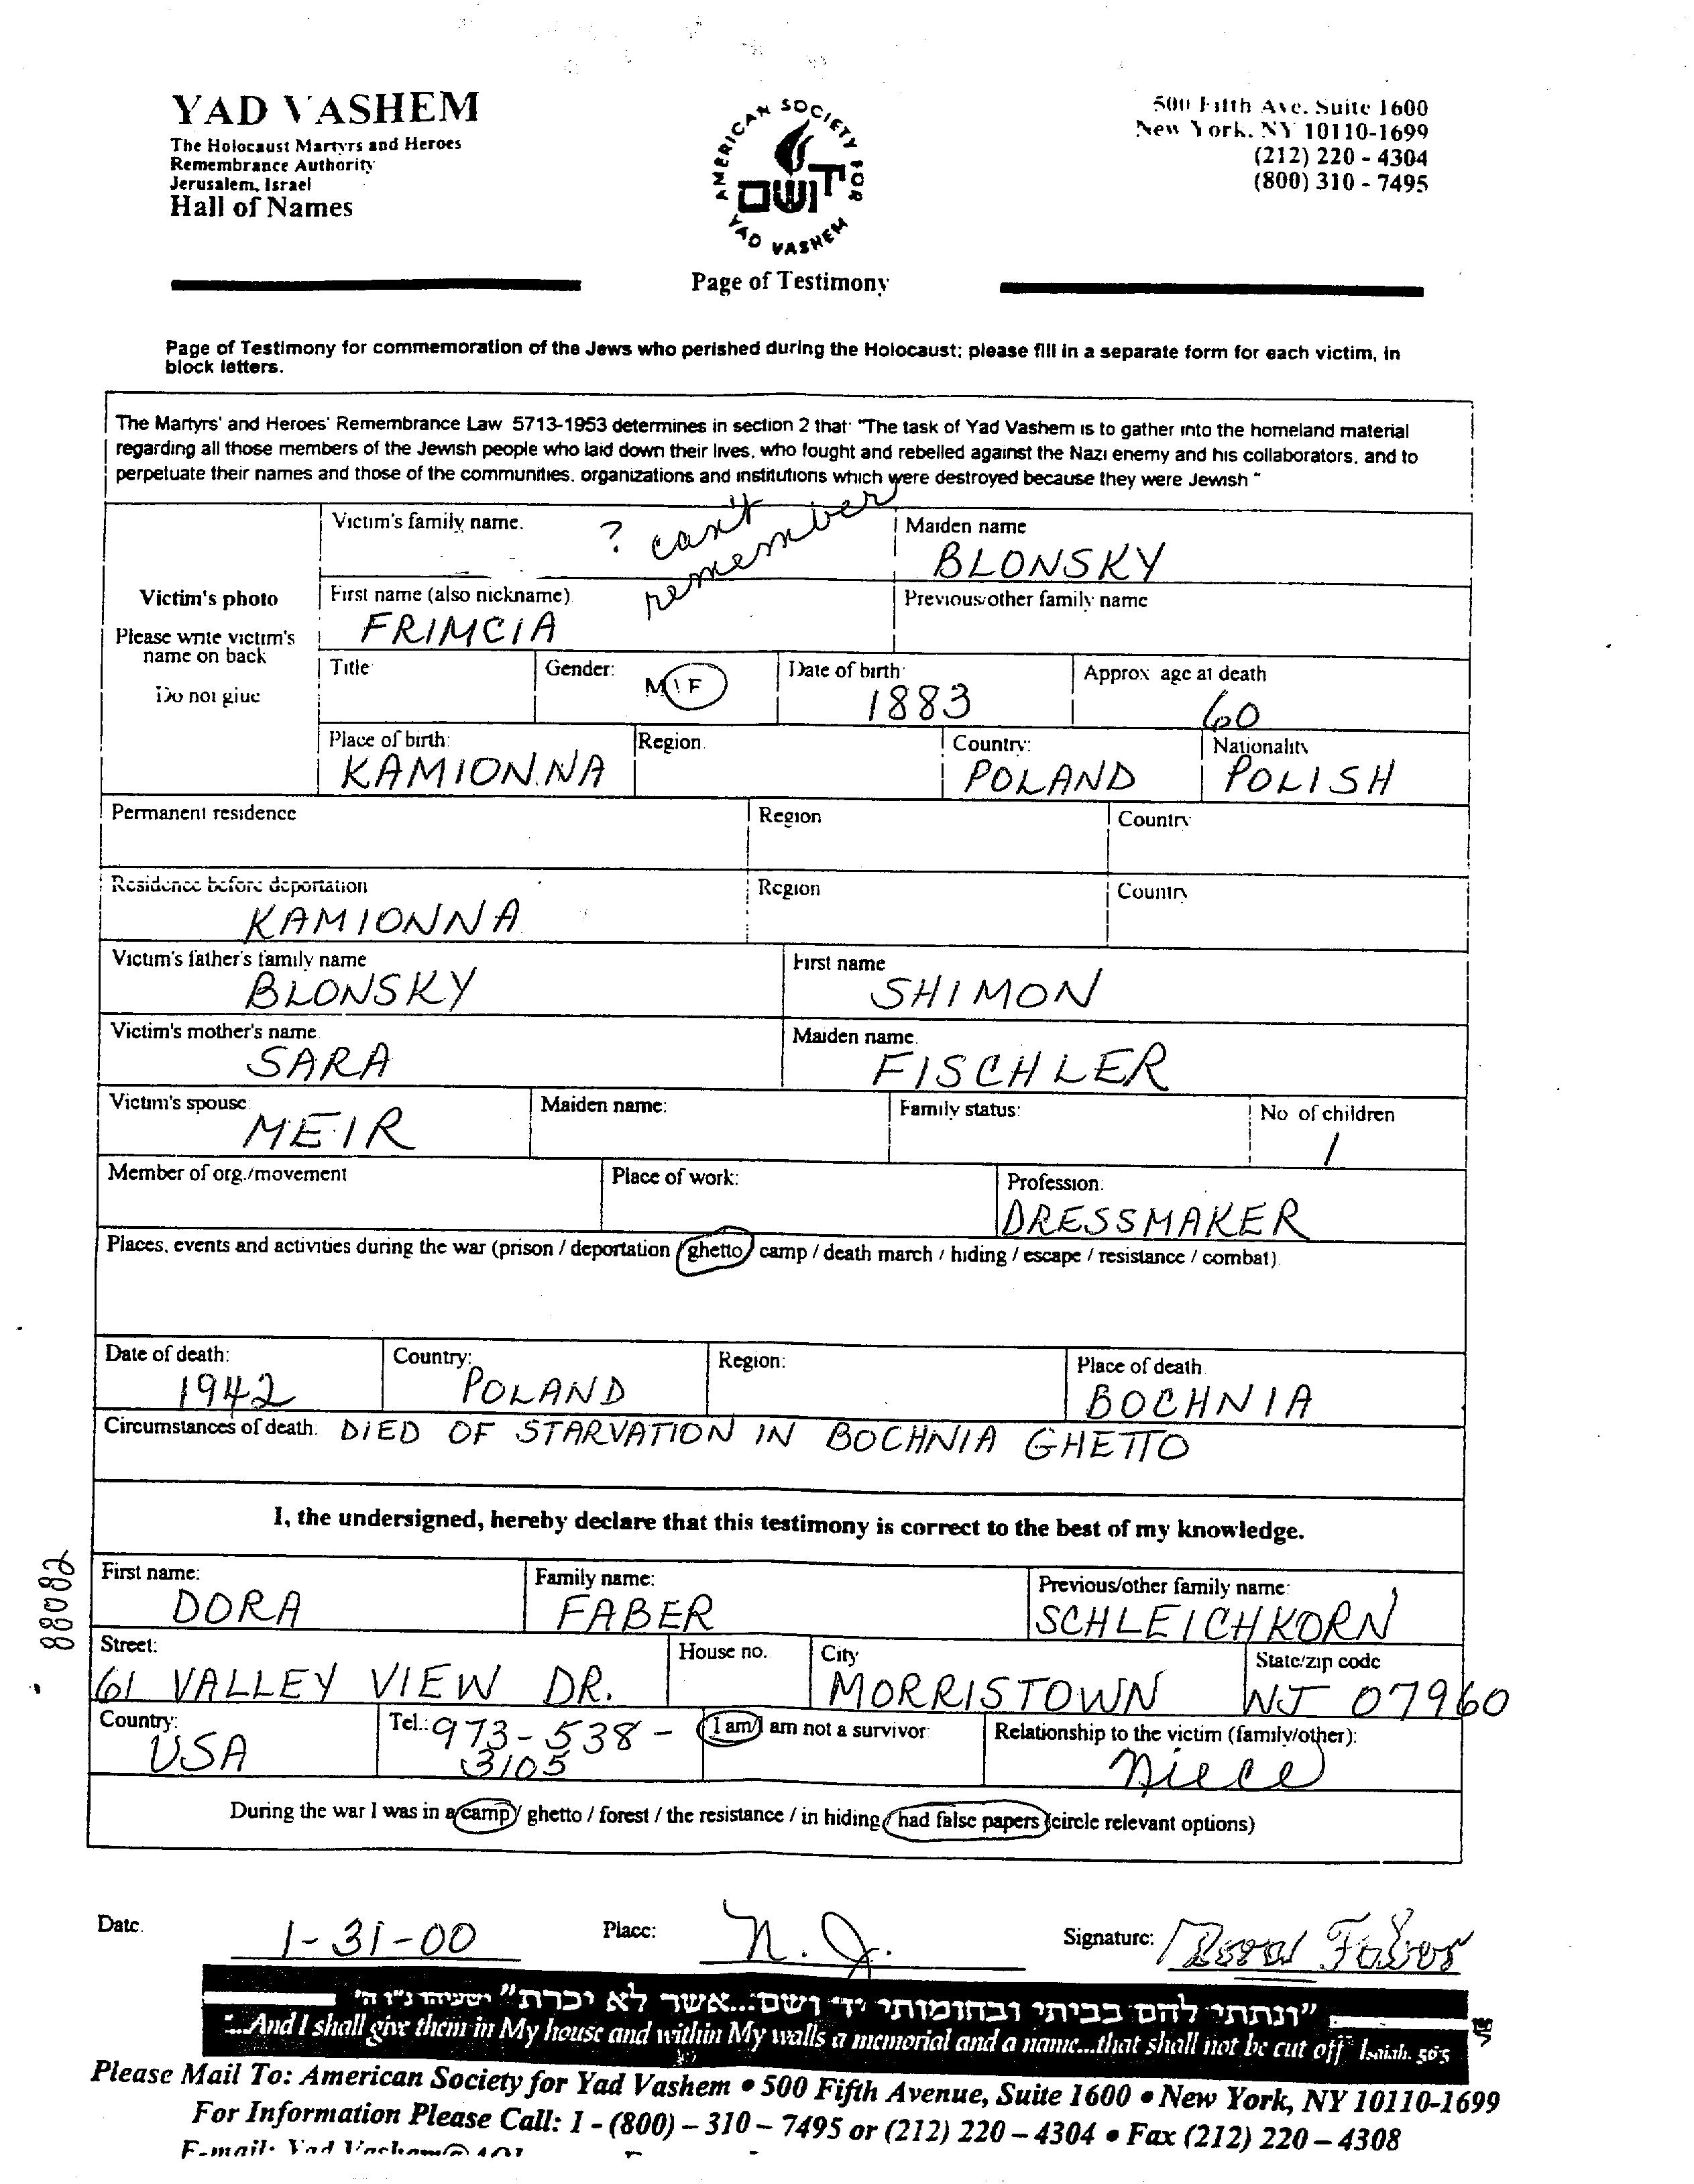 YAD VASHEM
The Holocaust Martyrs and Heroes
Remembrance Authority
Jerusalem, Israel
Hall of Names
AMERICAN SOCIETY FOR
יד ושם
YAD VASHEM
500 Fifth Ave. Suite 1600
New York. NY 10110-1699
(212) 220 - 4304
(800) 310 - 7495
Page of Testimony
Page of Testimony for commemoration of the Jews who perished during the Holocaust; please fill in a separate form for each victim, in
block letters.
The Martyrs' and Heroes' Remembrance Law 5713-1953 determines in section 2 that: "The task of Yad Vashem is to gather into the homeland material
regarding all those members of the Jewish people who laid down their lives, who fought and rebelled against the Nazi enemy and his collaborators, and to
perpetuate their names and those of the communities, organizations and institutions which were destroyed because they were Jewish "
Victim's photo
Please write victim's
name on back
Do not glue
Victim's family name. ? can't remember
Maiden name
BLONSKY
First name (also nickname)
FRIMCIA
Previous/other family name
Title
Gender: M \ F
Date of birth:
1883
Approx age at death
60
Place of birth:
KAMIONNA
Region
Country:
POLAND
Nationality
POLISH
Permanent residence
Region
Country
Residence before deportation
KAMIONNA
Region
Country
Victim's father's family name
BLONSKY
First name
SHIMON
Victim's mother's name
SARA
Maiden name
FISCHLER
Victim's spouse
MEIR
Maiden name:
Family status:
No of children
1
Member of org./movement
Place of work:
Profession:
DRESSMAKER
Places, events and activities during the war (prison / deportation / ghetto / camp / death march / hiding / escape / resistance / combat)
Date of death:
1942
Country:
POLAND
Region:
Place of death
BOCHNIA
Circumstances of death: DIED OF STARVATION IN BOCHNIA GHETTO
I, the undersigned, hereby declare that this testimony is correct to the best of my knowledge.
88082
First name:
DORA
Family name:
FABER
Previous/other family name:
SCHLEICHKORN
Street:
61 VALLEY VIEW DR.
House no.
City
MORRISTOWN
State/zip code
NJ 07960
Country:
USA
Tel.: 973-538-
3105
I am / am not a survivor:
Relationship to the victim (family/other):
Niece
During the war I was in a camp / ghetto / forest / the resistance / in hiding / had false papers (circle relevant options)
Date
1-31-00
Place:
N. J.
Signature: Dora Faber
"ונתתי להם בביתי ובחומותי יד ושם...אשר לא יכרת" ישעיהו נ"ו ה'
"...And I shall give them in My house and within My walls a memorial and a name...that shall not be cut off" Isaiah. 56:5
Please Mail To: American Society for Yad Vashem • 500 Fifth Avenue, Suite 1600 • New York, NY 10110-1699
For Information Please Call: 1 - (800) – 310 – 7495 or (212) 220 – 4304 • Fax (212) 220 – 4308
E-mail: Yad